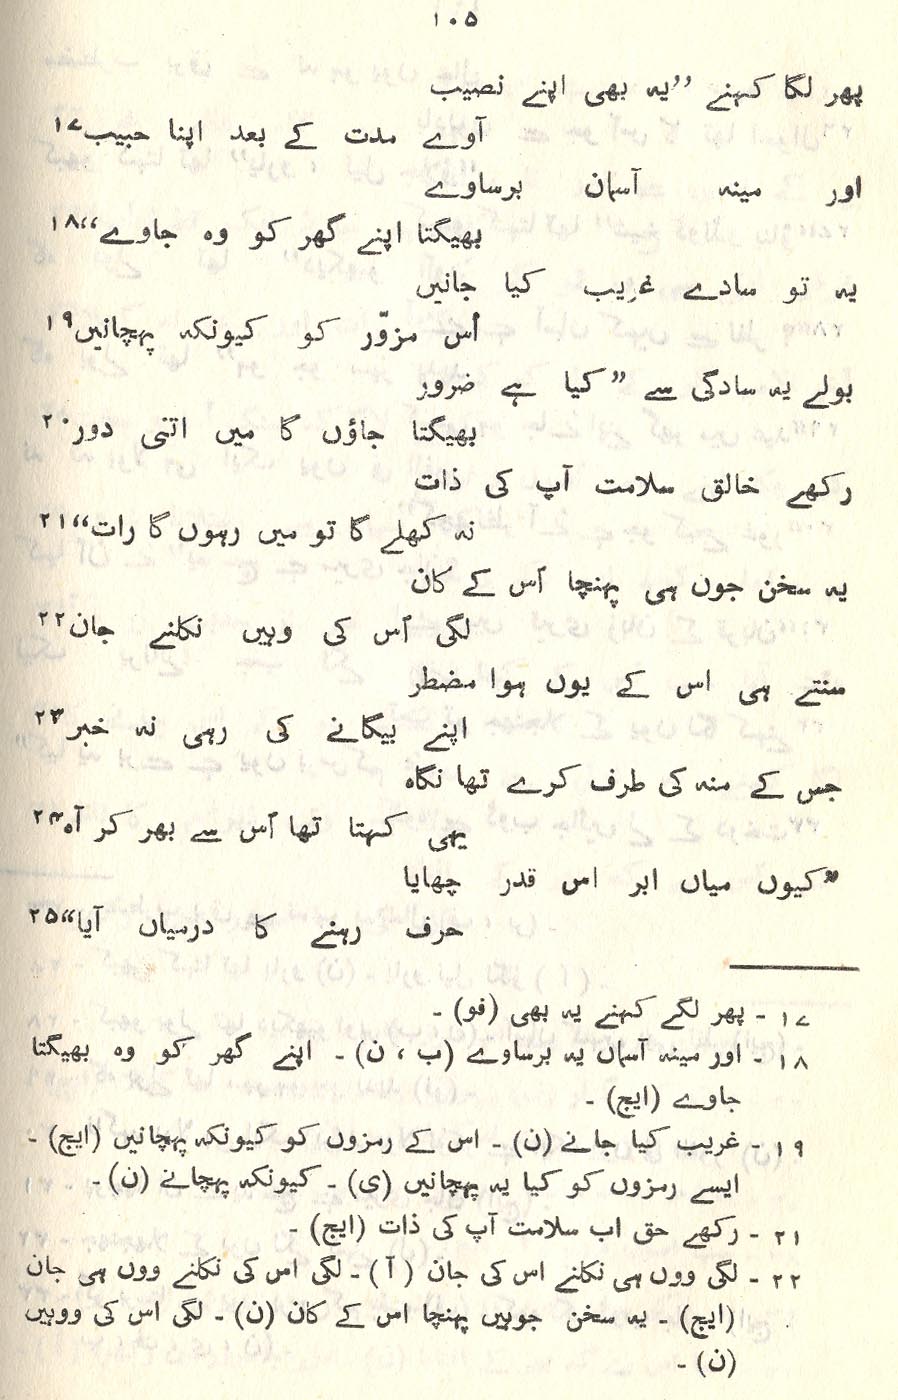 ۱۰۵
پھر لگا کہنے ”یہ بھی اپنے نصیب
آوے مدت کے بعد اپنا حبیب۱۷
اور مینہ آسمان برساوے
بھیگتا اپنے گھر کو وہ جاوے“۱۸
یہ تو سادے غریب کیا جانیں
اُس مزوّر کو کیونکہ پہچانیں۱۹
بولے یہ سادگی سے ”کیا ہے ضرور
بھیگتا جاؤں گا میں اتنی دور۲۰
رکھے خالق سلامت آپ کی ذات
نہ کھلے گا تو میں رہوں گا رات“۲۱
یہ سخن جون ہی پہنچا اُس کے کان
لگی اُس کی وہیں نکلنے جان۲۲
سنتے ہی اس کے یوں ہوا مضطر
اپنے بیگانے کی رہی نہ خبر۲۳
جس کے منہ کی طرف کرے تھا نگاہ
یہی کہتا تھا اُس سے بھر کر آہ۲۴
”کیوں میاں ابر اس قدر چھایا
حرف رہنے کا درمیاں آیا“۲۵
۱۷ - پھر لگے کہنے یہ بھی (فو) -
۱۸ - اور مینہ آسماں یہ برساوے (ب ، ن) - اپنے گھر کو وہ بھیگتا
جاوے (ایچ) -
۱۹ - غریب کیا جانے (ن) - اس کے رمزوں کو کیونکہ پہچانیں (ایچ) -
ایسے رمزوں کو کیا یہ پہچانیں (ی) - کیونکہ پہچانے (ن) -
۲۱ - رکھے حق اب سلامت آپ کی ذات (ایچ) -
۲۲ - لگی ووں ہی نکلنے اس کی جان (آ) - لگی اس کی نکلنے ووں ہی جان
(ایچ) - یہ سخن جوہیں پہنچا اس کے کان (ن) - لگی اس کی ووہیں
(ن) -